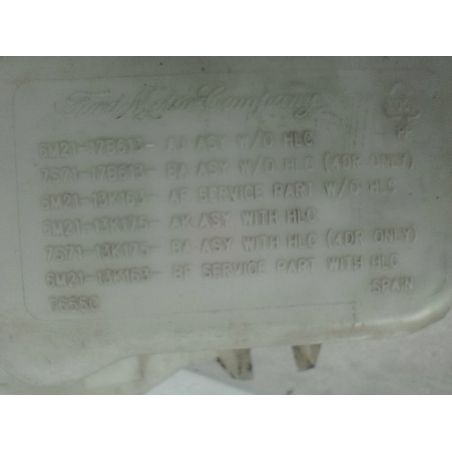 Ford Motor Company
PP
6M21-17B613- AJ ASY W/O HLC
7S71-17B613- BA ASY W/O HLC (4DR ONLY)
6M21-13K163- AF SERVICE PART W/O HLC
6M21-13K175- AK ASY WITH HLC
7S71-13K175- BA ASY WITH HLC (4DR ONLY)
6M21-13K163- BF SERVICE PART WITH HLC
SPAIN